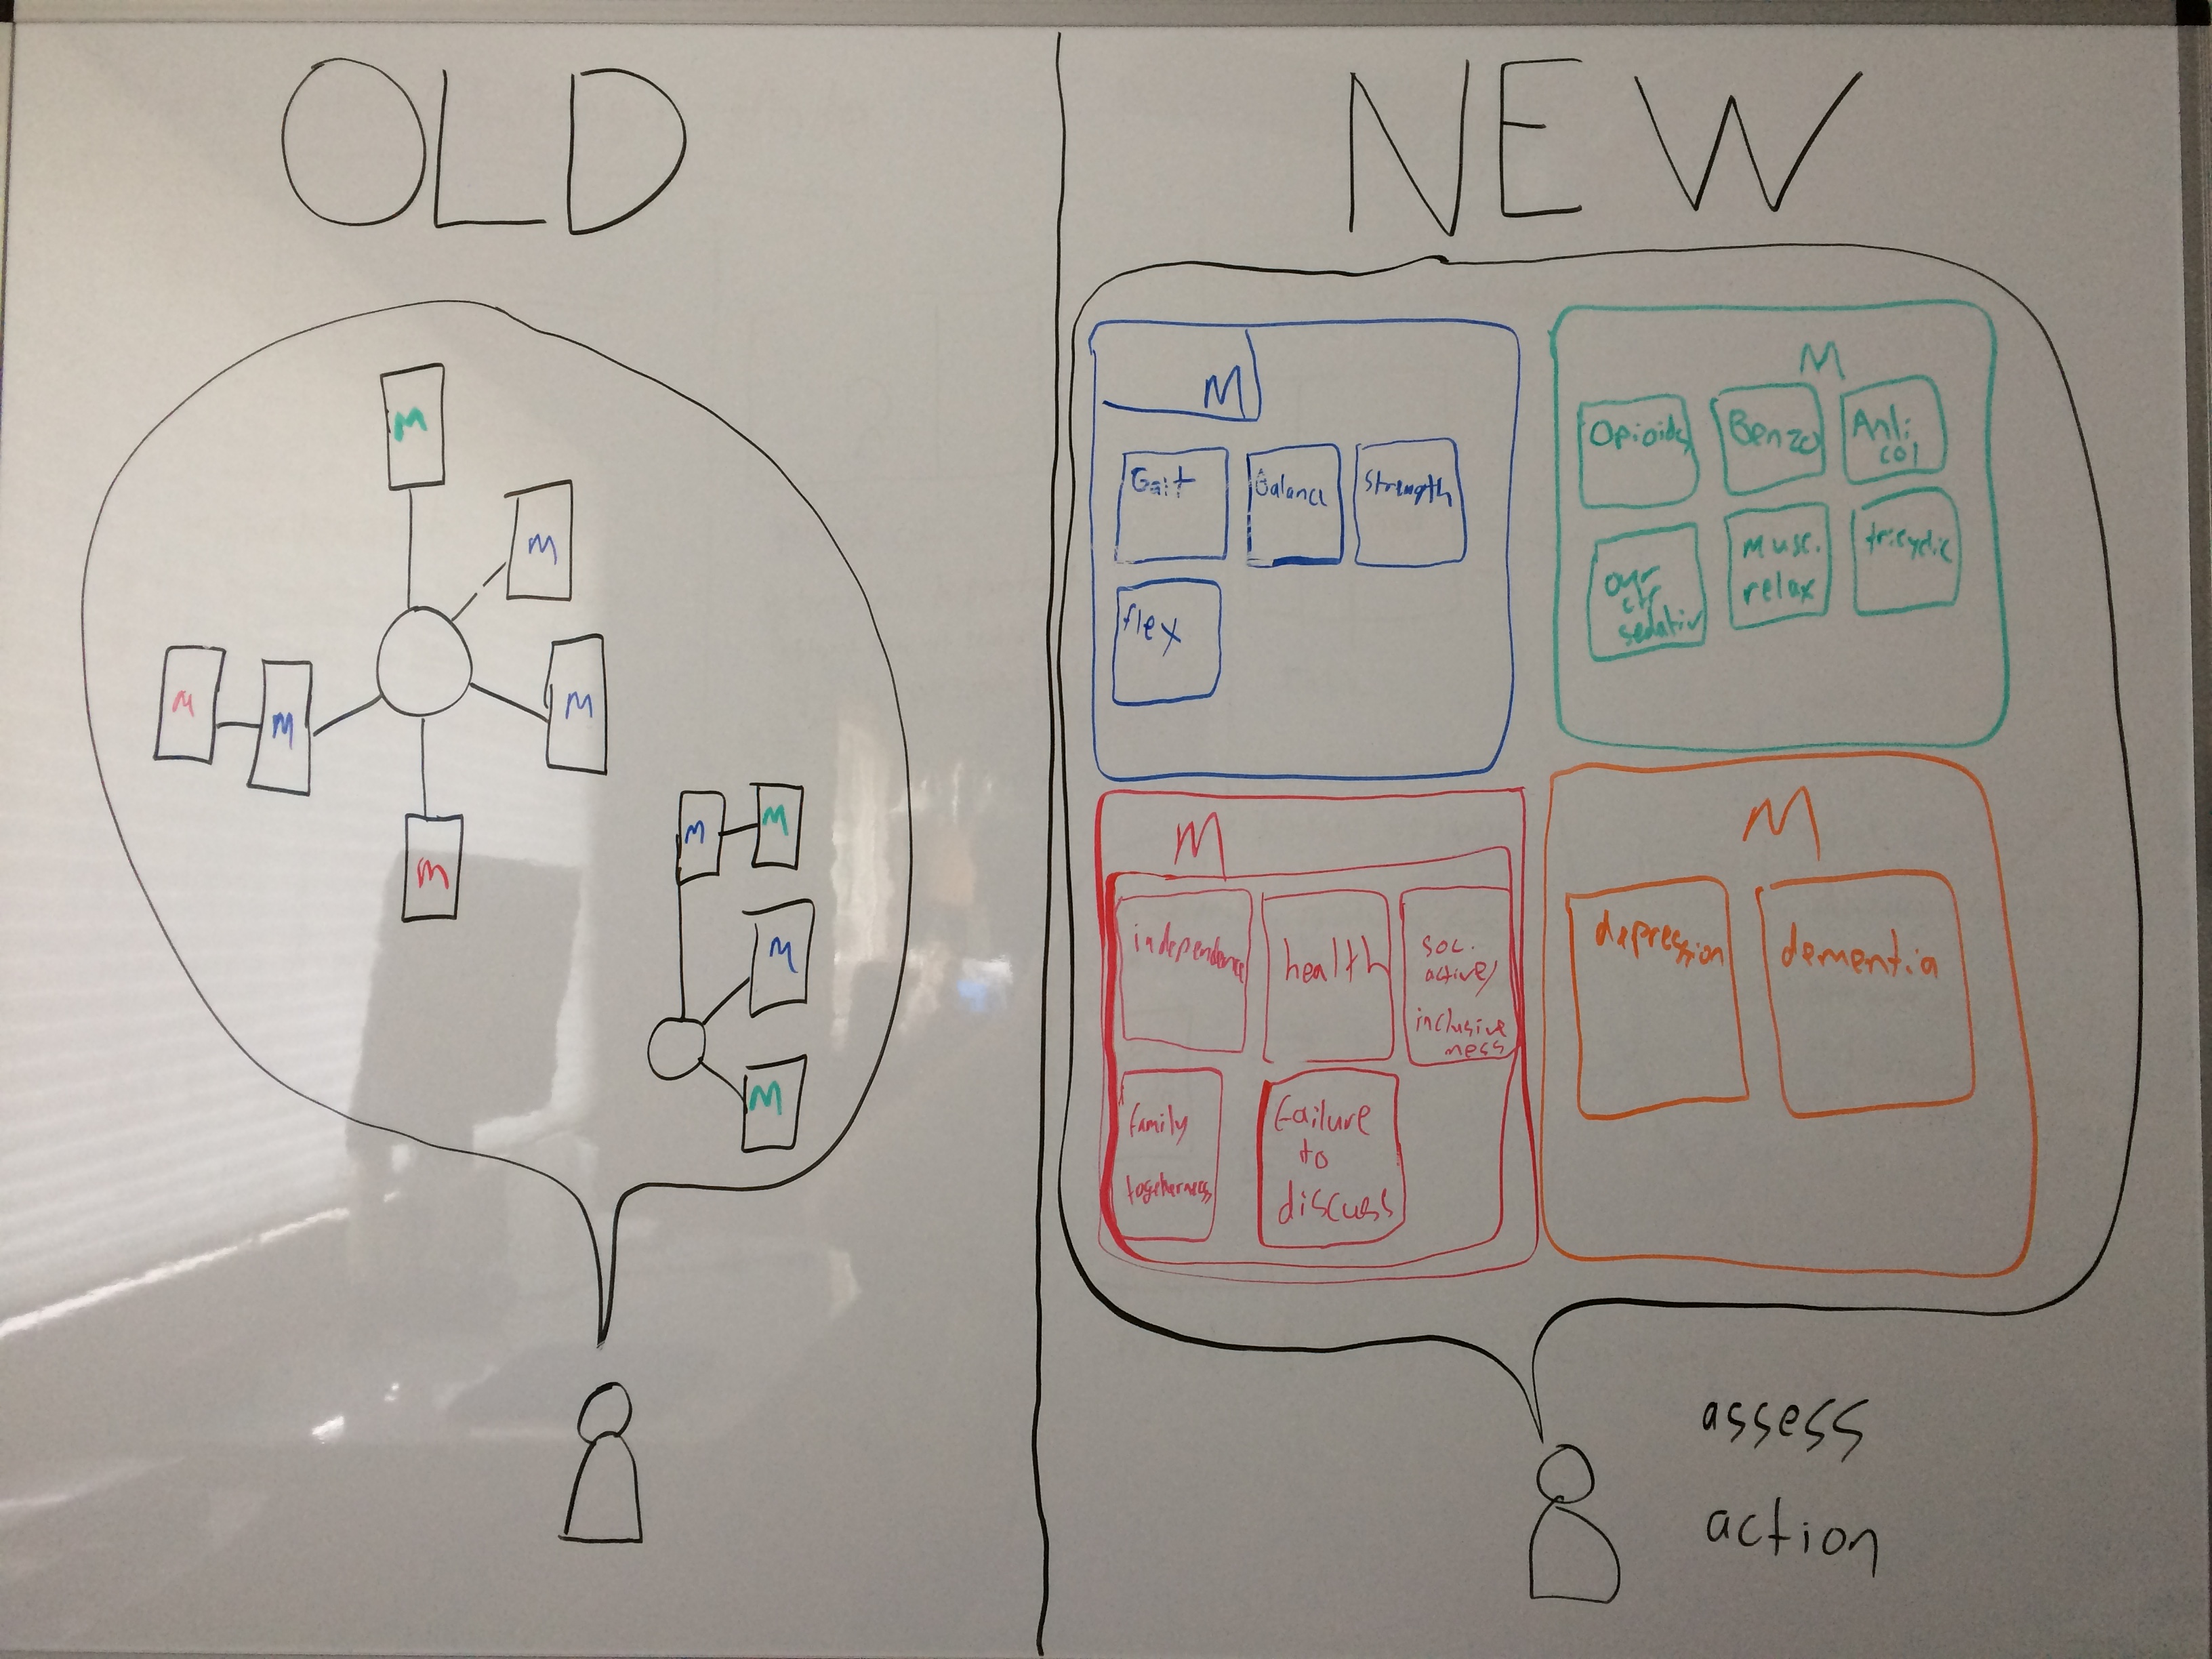 OLD
NEW
M
M
M
M
M
M
M
M
M
M
M
Gait
Balance
Strength
flex
M
Opioids
Benzo
Anti
col
sedativ
musc.
relax
tricyclic
M
independence
health
soc.
active/
inclusive
ness
family
togetherness
failure
to
discuss
M
depression
dementia
assess
action